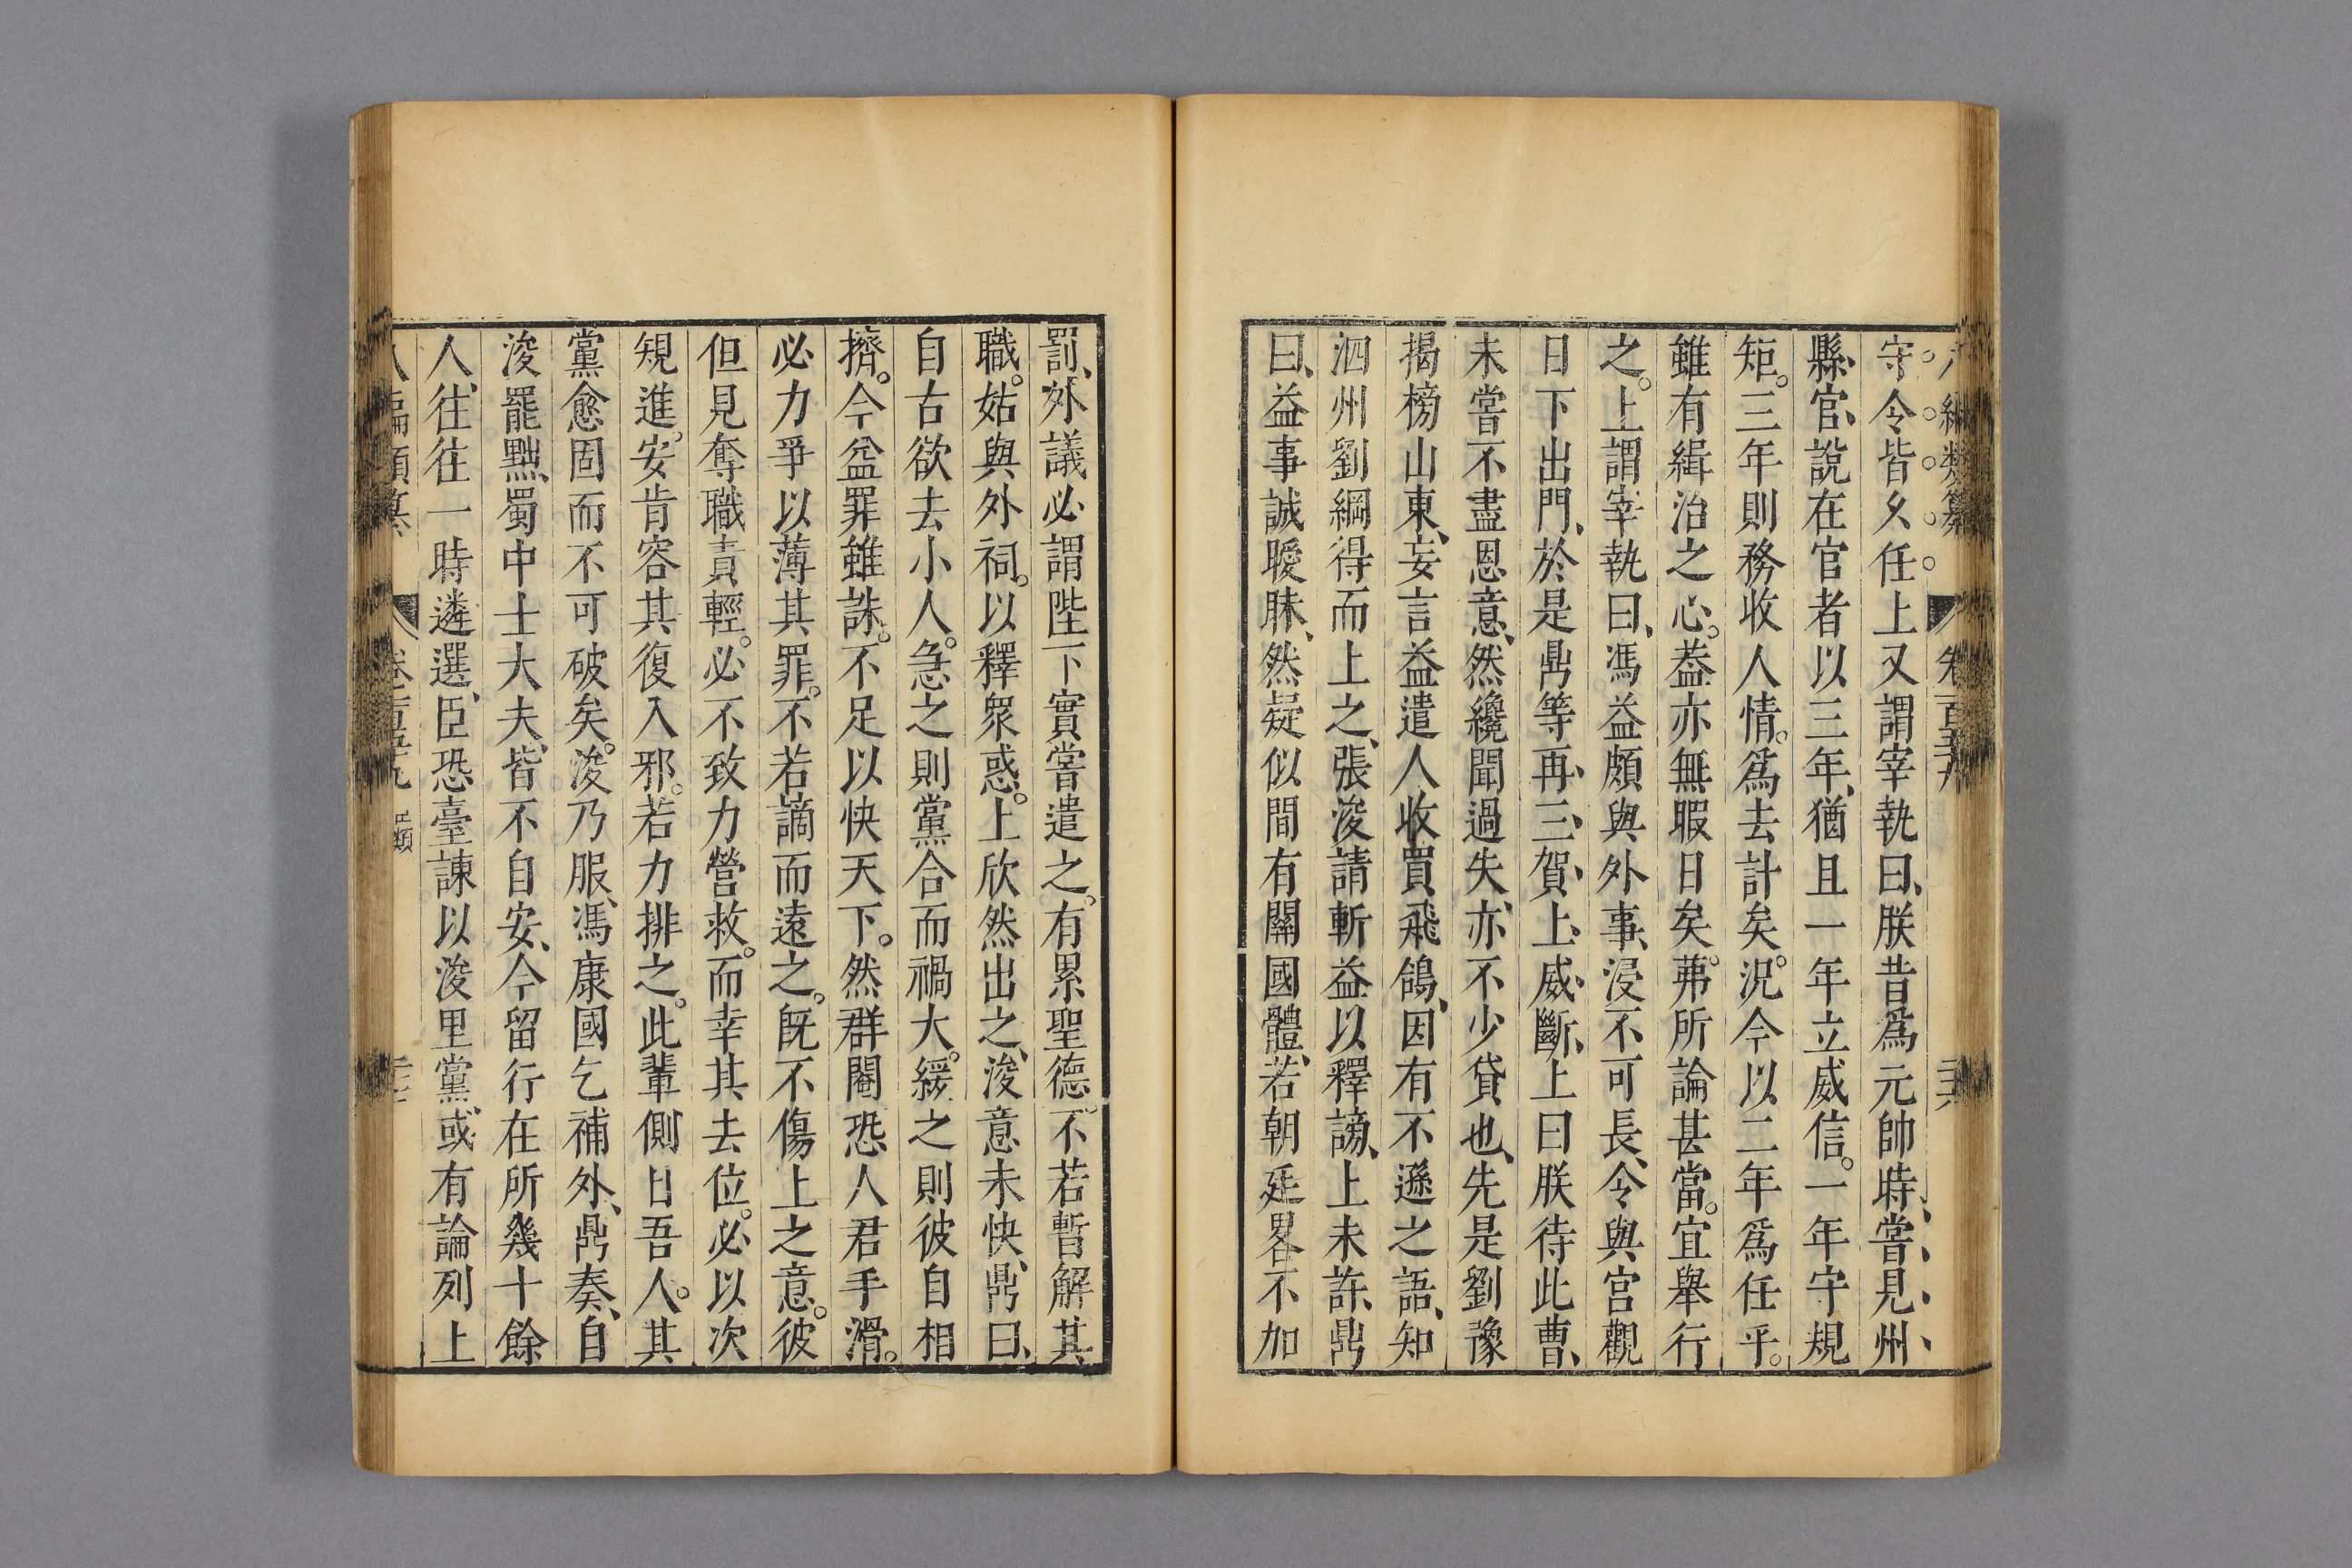 守令皆久任上又謂宰執曰朕昔爲元帥時嘗見州
縣官說在官者以三年猶且一年立威信一年守規
矩三年則務收人情爲去計矣況今以二年爲任乎
雖有緝治之心葢亦無暇日矣茀所論甚當宜舉行
之上謂宰執曰馮益頗與外事浸不可長令與宮觀
日下出門於是鼎等再三賀上威斷上曰朕待此曹
未嘗不盡恩意然纔聞過失亦不少貸也先是劉豫
揭榜山東妄言益遣人收買飛鴿因有不遜之語知
泗州劉綱得而上之張浚請斬益以釋謗上未許鼎
曰益事誠曖昧然疑似間有關國體若朝廷畧不加
罰外議必謂陛下實嘗遣之有累聖德不若暫解其
職姑與外祠以釋眾惑上欣然出之浚意未快鼎曰
自古欲去小人急之則黨合而禍大緩之則彼自相
擠今益罪雖誅不足以快天下然群閹恐人君手滑
必力爭以薄其罪不若謫而遠之既不傷上之意彼
但見奪職責輕必不致力營救而幸其去位必以次
規進安肯容其復入邪若力排之此輩側目吾人其
黨愈固而不可破矣浚乃服馮康國乞補外鼎奏自
浚罷黜蜀中士大夫皆不自安今留行在所幾十餘
人往往一時遴選臣恐臺諫以浚里黨或有論列上